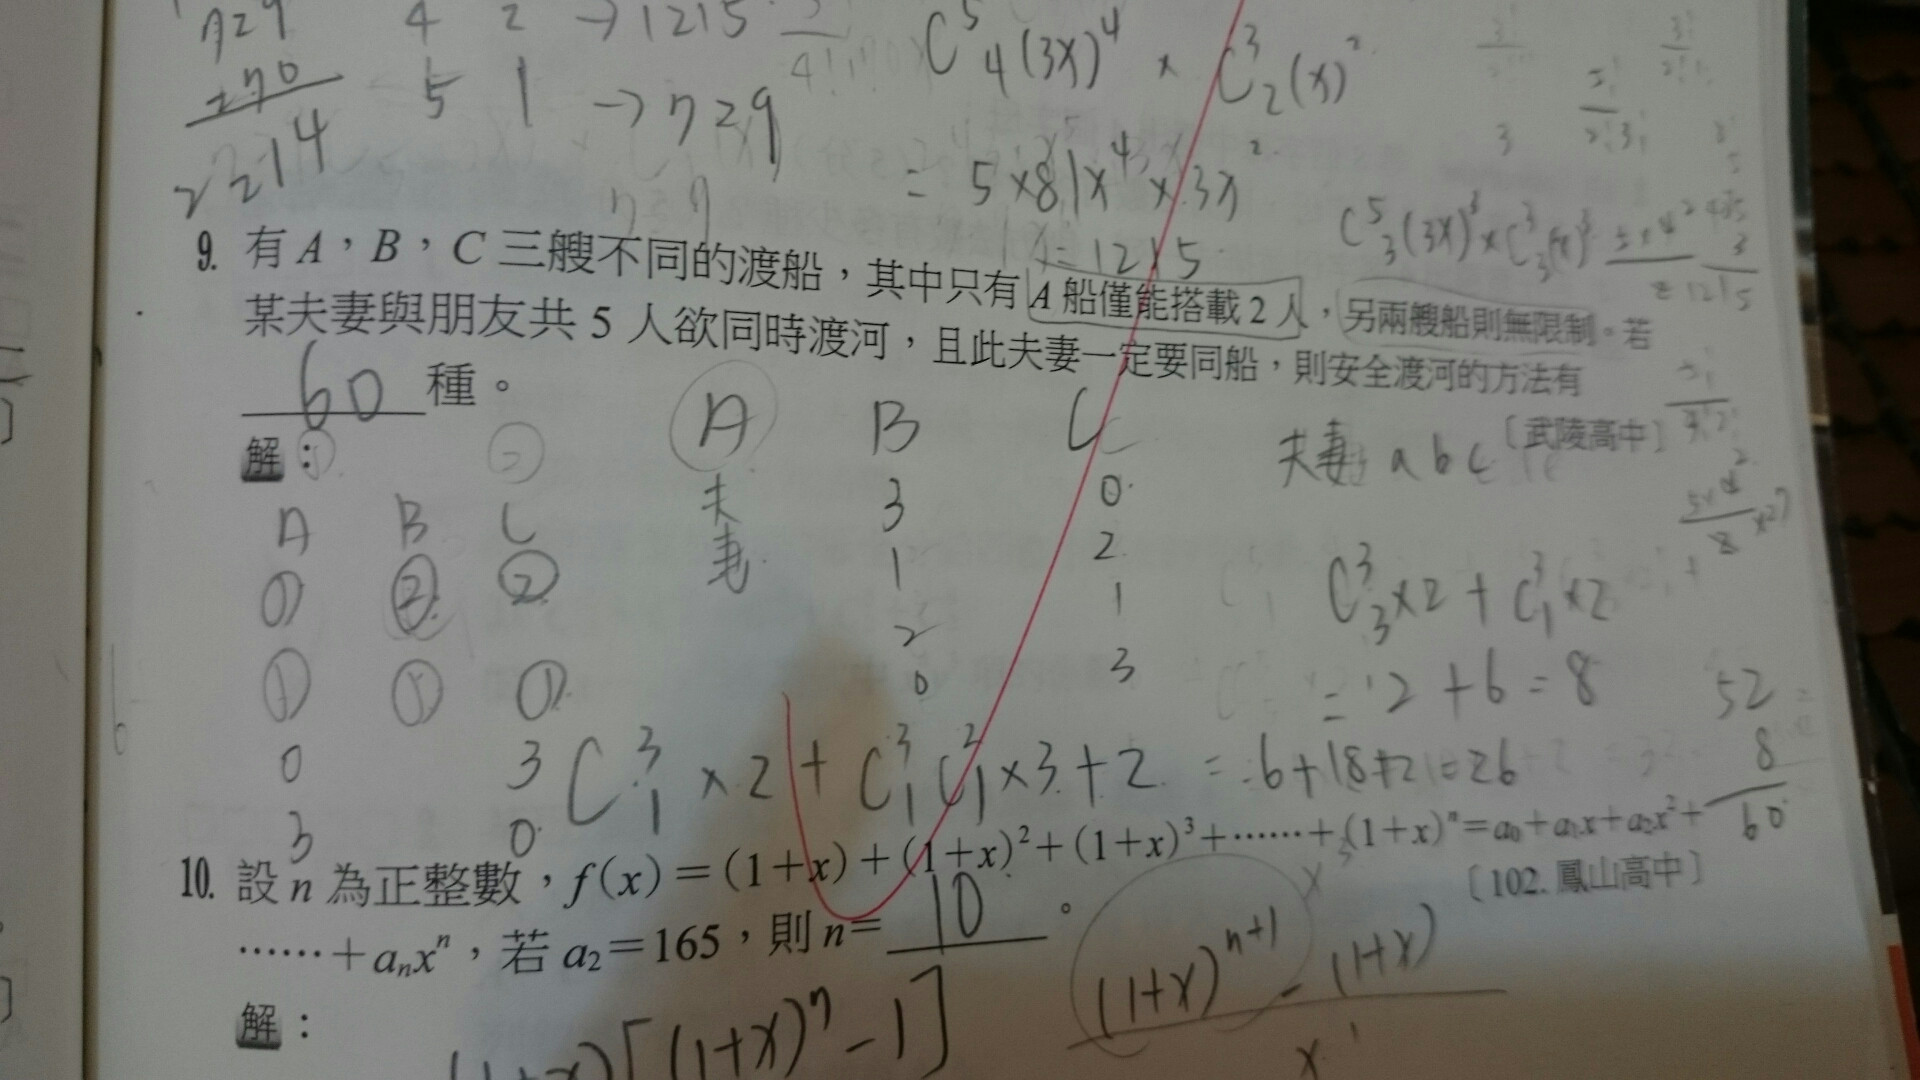 729 4 2 → 1215
+270 5 1 → 729
2214
C⁵₄(3x)⁴ × C³₂(x)²
= 5×81x⁴×3x²
=1215
C⁵₃(3x)³×C³₃(x)³
9. 有A,B,C三艘不同的渡船,其中只有A船僅能搭載2人,另兩艘船則無限制。若
某夫妻與朋友共5人欲同時渡河,且此夫妻一定要同船,則安全渡河的方法有
60 種。
〔武陵高中〕
解:
夫妻 a b c
A B C
夫 3 0
妻 1 2
2 1
0 3
A B C
① ② ②
① ① ①
0 3
3 0
C³₃×2+C³₁×2
=2+6=8
C³₁×2+C³₁C²₁×3+2=6+18+2=26
52
8
60
10. 設n為正整數,f(x)=(1+x)+(1+x)²+(1+x)³+……+(1+x)ⁿ=a₀+a₁x+a₂x²+
……+aₙxⁿ,若a₂=165,則n=10。
〔102.鳳山高中〕
解:
(1+x)[(1+x)ⁿ-1]
(1+x)ⁿ⁺¹-(1+x)
x